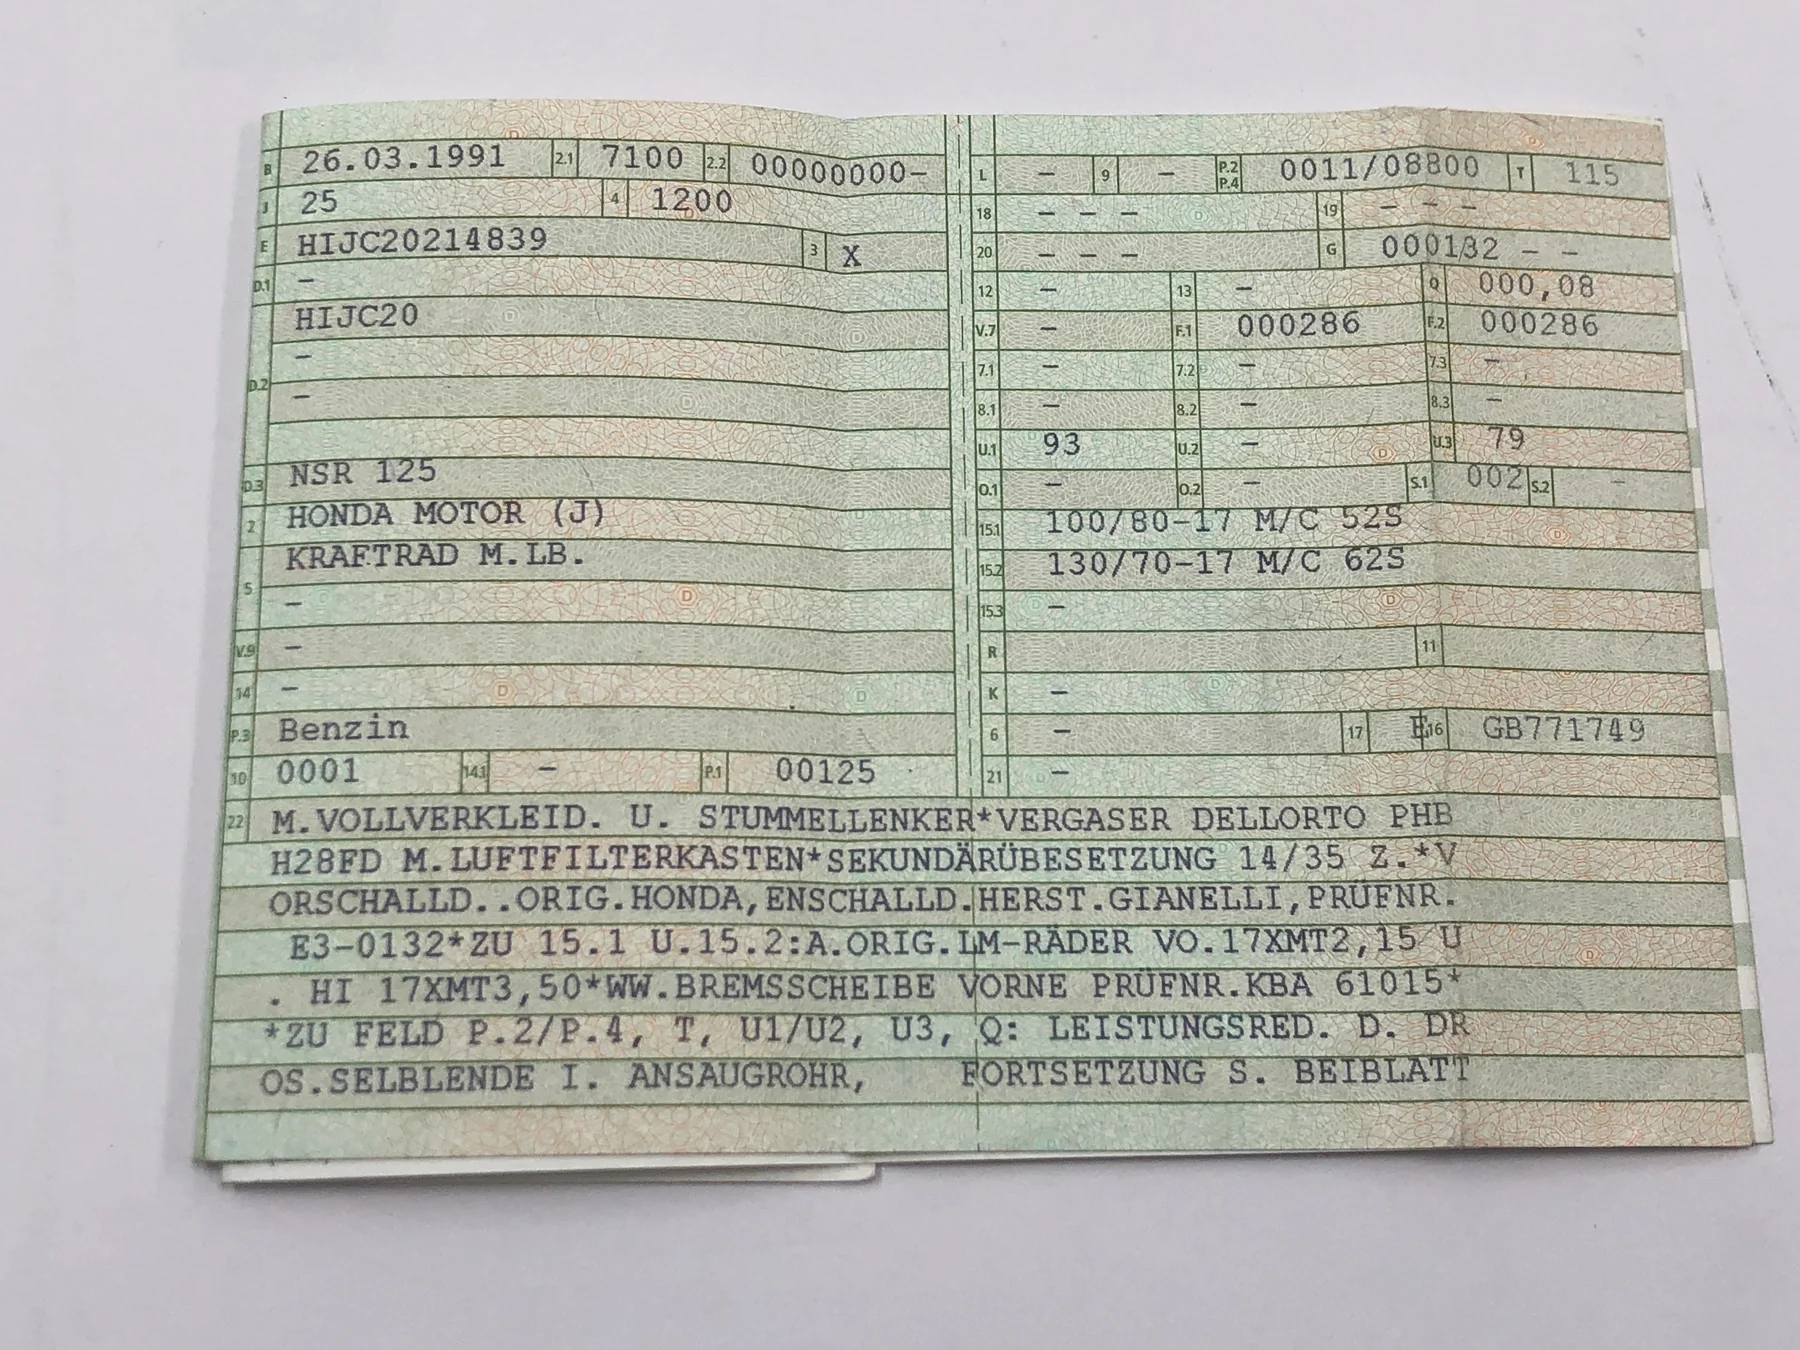 B 26.03.1991 2.1 7100 2.2 00000000-
J 25 4 1200
E HIJC20214839 3 X
D.1 -
HIJC20
-
D.2
-
D.3 NSR 125
2 HONDA MOTOR (J)
KRAFTRAD M.LB.
5
-
V.9 -
14 -
P.3 Benzin
10 0001 14.1 - P.1 00125
L - 9 - P.2 P.4 0011/08800 T 115
18 - - - 19 - - -
20 - - - G 000132 - -
12 - 13 - Q 000,08
V.7 - F.1 000286 F.2 000286
7.1 - 7.2 - 7.3 -
8.1 - 8.2 - 8.3 -
U.1 93 U.2 - U.3 79
O.1 - O.2 - S.1 002 S.2 -
15.1 100/80-17 M/C 52S
15.2 130/70-17 M/C 62S
15.3 -
R 11
K -
6 - 17 E 16 GB771749
21 -
22 M.VOLLVERKLEID. U. STUMMELLENKER*VERGASER DELLORTO PHB
H28FD M.LUFTFILTERKASTEN*SEKUNDÄRÜBESETZUNG 14/35 Z.*V
ORSCHALLD..ORIG.HONDA,ENSCHALLD.HERST.GIANELLI,PRÜFNR.
E3-0132*ZU 15.1 U.15.2:A.ORIG.LM-RÄDER VO.17XMT2,15 U
. HI 17XMT3,50*WW.BREMSSCHEIBE VORNE PRÜFNR.KBA 61015*
*ZU FELD P.2/P.4, T, U1/U2, U3, Q: LEISTUNGSRED. D. DR
OS.SELBLENDE I. ANSAUGROHR, FORTSETZUNG S. BEIBLATT